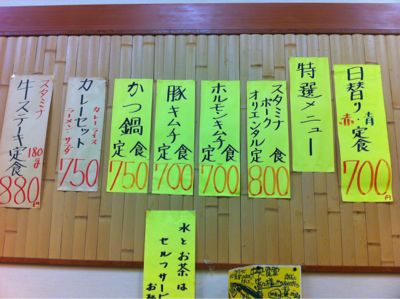 日替り
赤・青
定食
700円
特選メニュー
スタミナ
ポーク
オリエンタル
定食
800
ホルモンキムチ
定食
700
豚キムチ
定食
700
かつ鍋
定食
750
カレーセット
カレーライス
ラーメン・サラダ
750
スタミナ
牛ステーキ定食
180g
880円
水とお茶は
セルフサービ